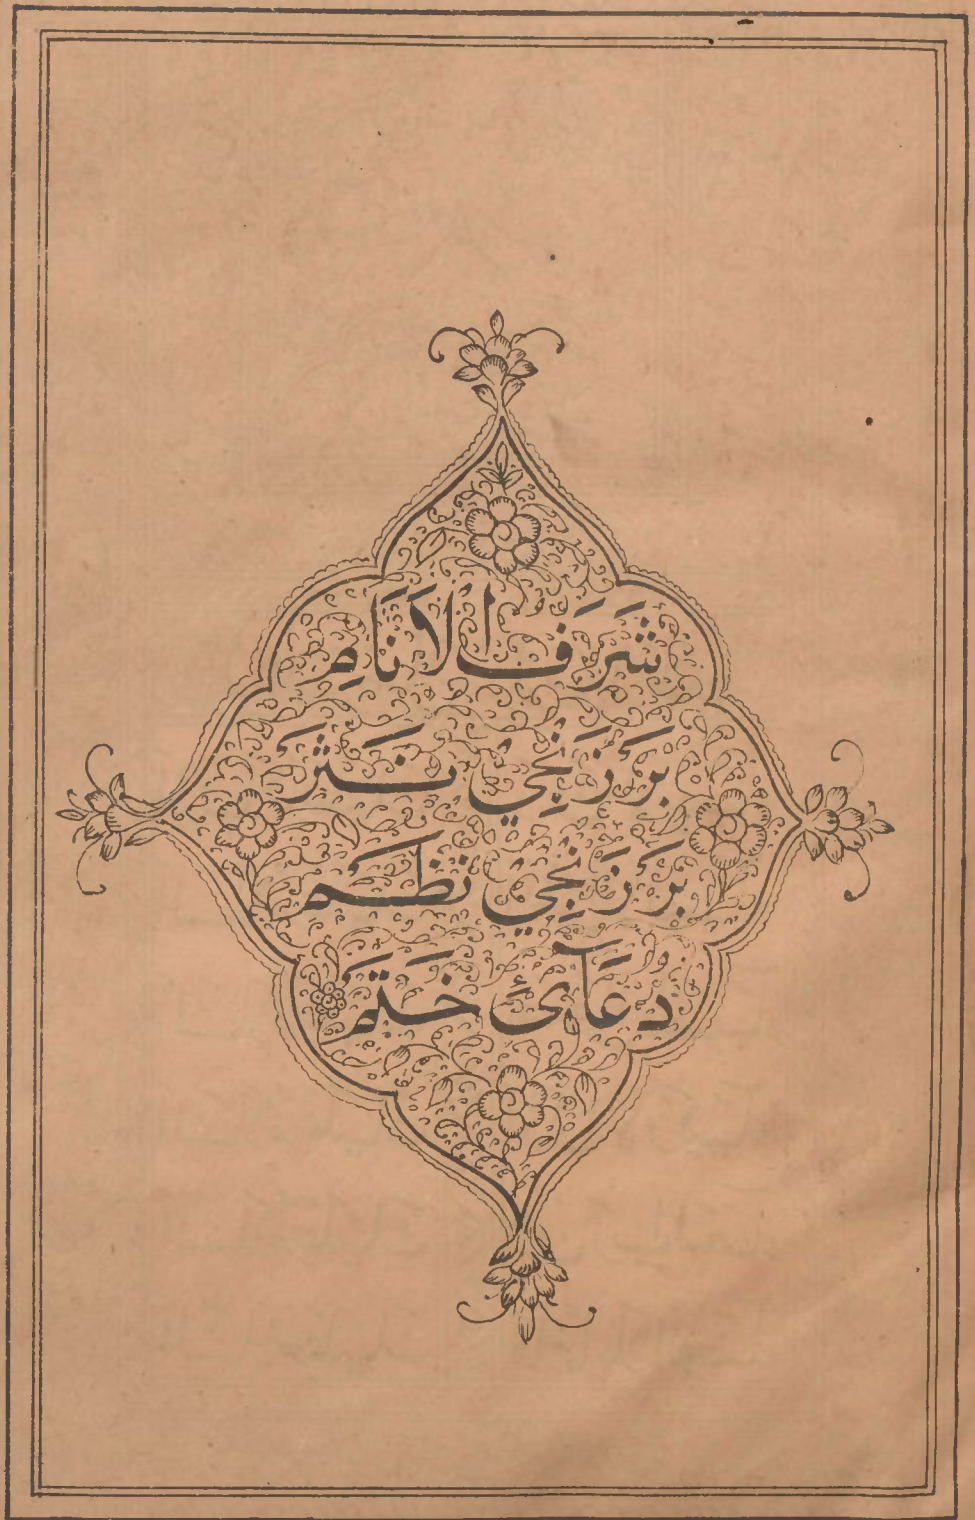 شَرَفَ الْاَنَامِ
بَرَزَنْجِيُ نَثَرْ
بَرَزَنْجِيُ نَظَمْ
دُعَآئُ خَتَمْ